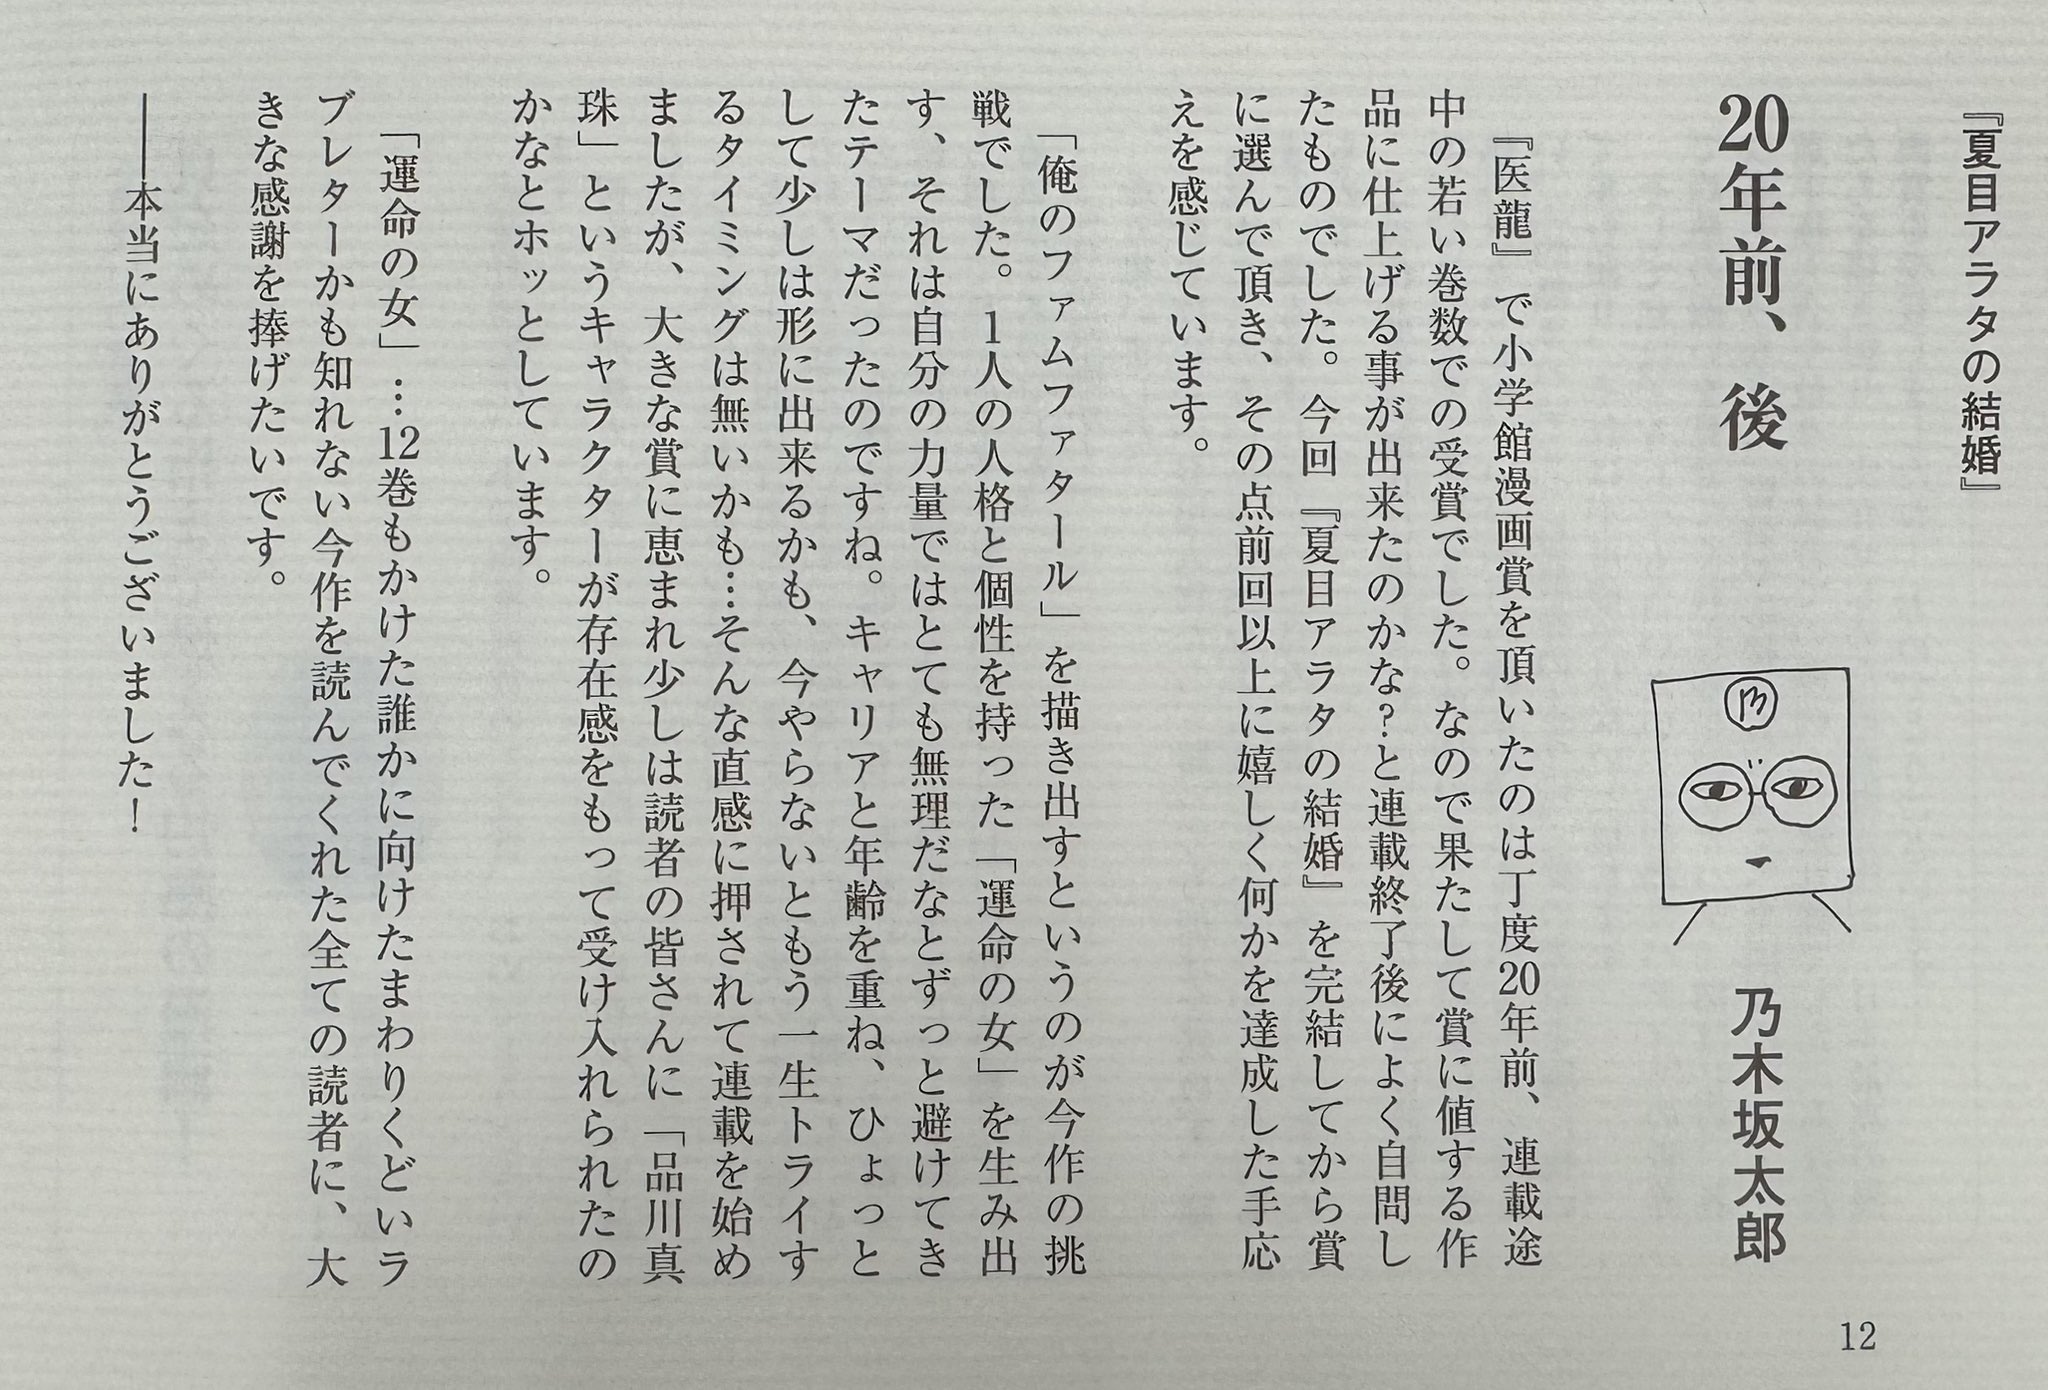 『夏目アラタの結婚』
20年前、後
乃木坂太郎
『医龍』で小学館漫画賞を頂いたのは丁度20年前、連載途
中の若い巻数での受賞でした。なので果たして賞に値する作
品に仕上げる事が出来たのかな?と連載終了後によく自問し
たものでした。今回『夏目アラタの結婚』を完結してから賞
に選んで頂き、その点前回以上に嬉しく何かを達成した手応
えを感じています。
「俺のファムファタール」を描き出すというのが今作の挑
戦でした。1人の人格と個性を持った「運命の女」を生み出
す、それは自分の力量ではとても無理だなとずっと避けてき
たテーマだったのですね。キャリアと年齢を重ね、ひょっと
して少しは形に出来るかも、今やらないともう一生トライす
るタイミングは無いかも…そんな直感に押されて連載を始め
ましたが、大きな賞に恵まれ少しは読者の皆さんに「品川真
珠」というキャラクターが存在感をもって受け入れられたの
かなとホッとしています。
「運命の女」…12巻もかけた誰かに向けたまわりくどいラ
ブレターかも知れない今作を読んでくれた全ての読者に、大
きな感謝を捧げたいです。
――本当にありがとうございました!
12